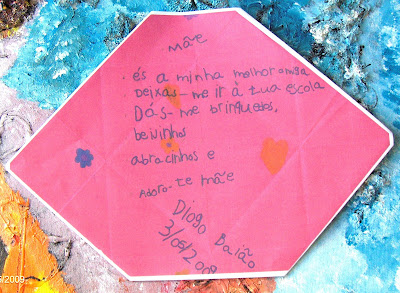 Mãe
és a minha melhor amiga
Deixas-me ir à tua escola
Dás-me brinquedos,
beijinhos
abracinhos e
Adoro-te mãe
Diogo Baião
3/05/2009
5/2009